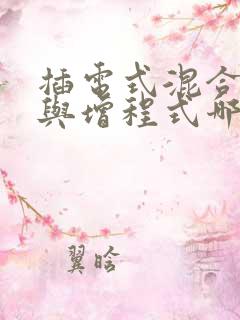 插電式混合
與增程式哪
翼晗